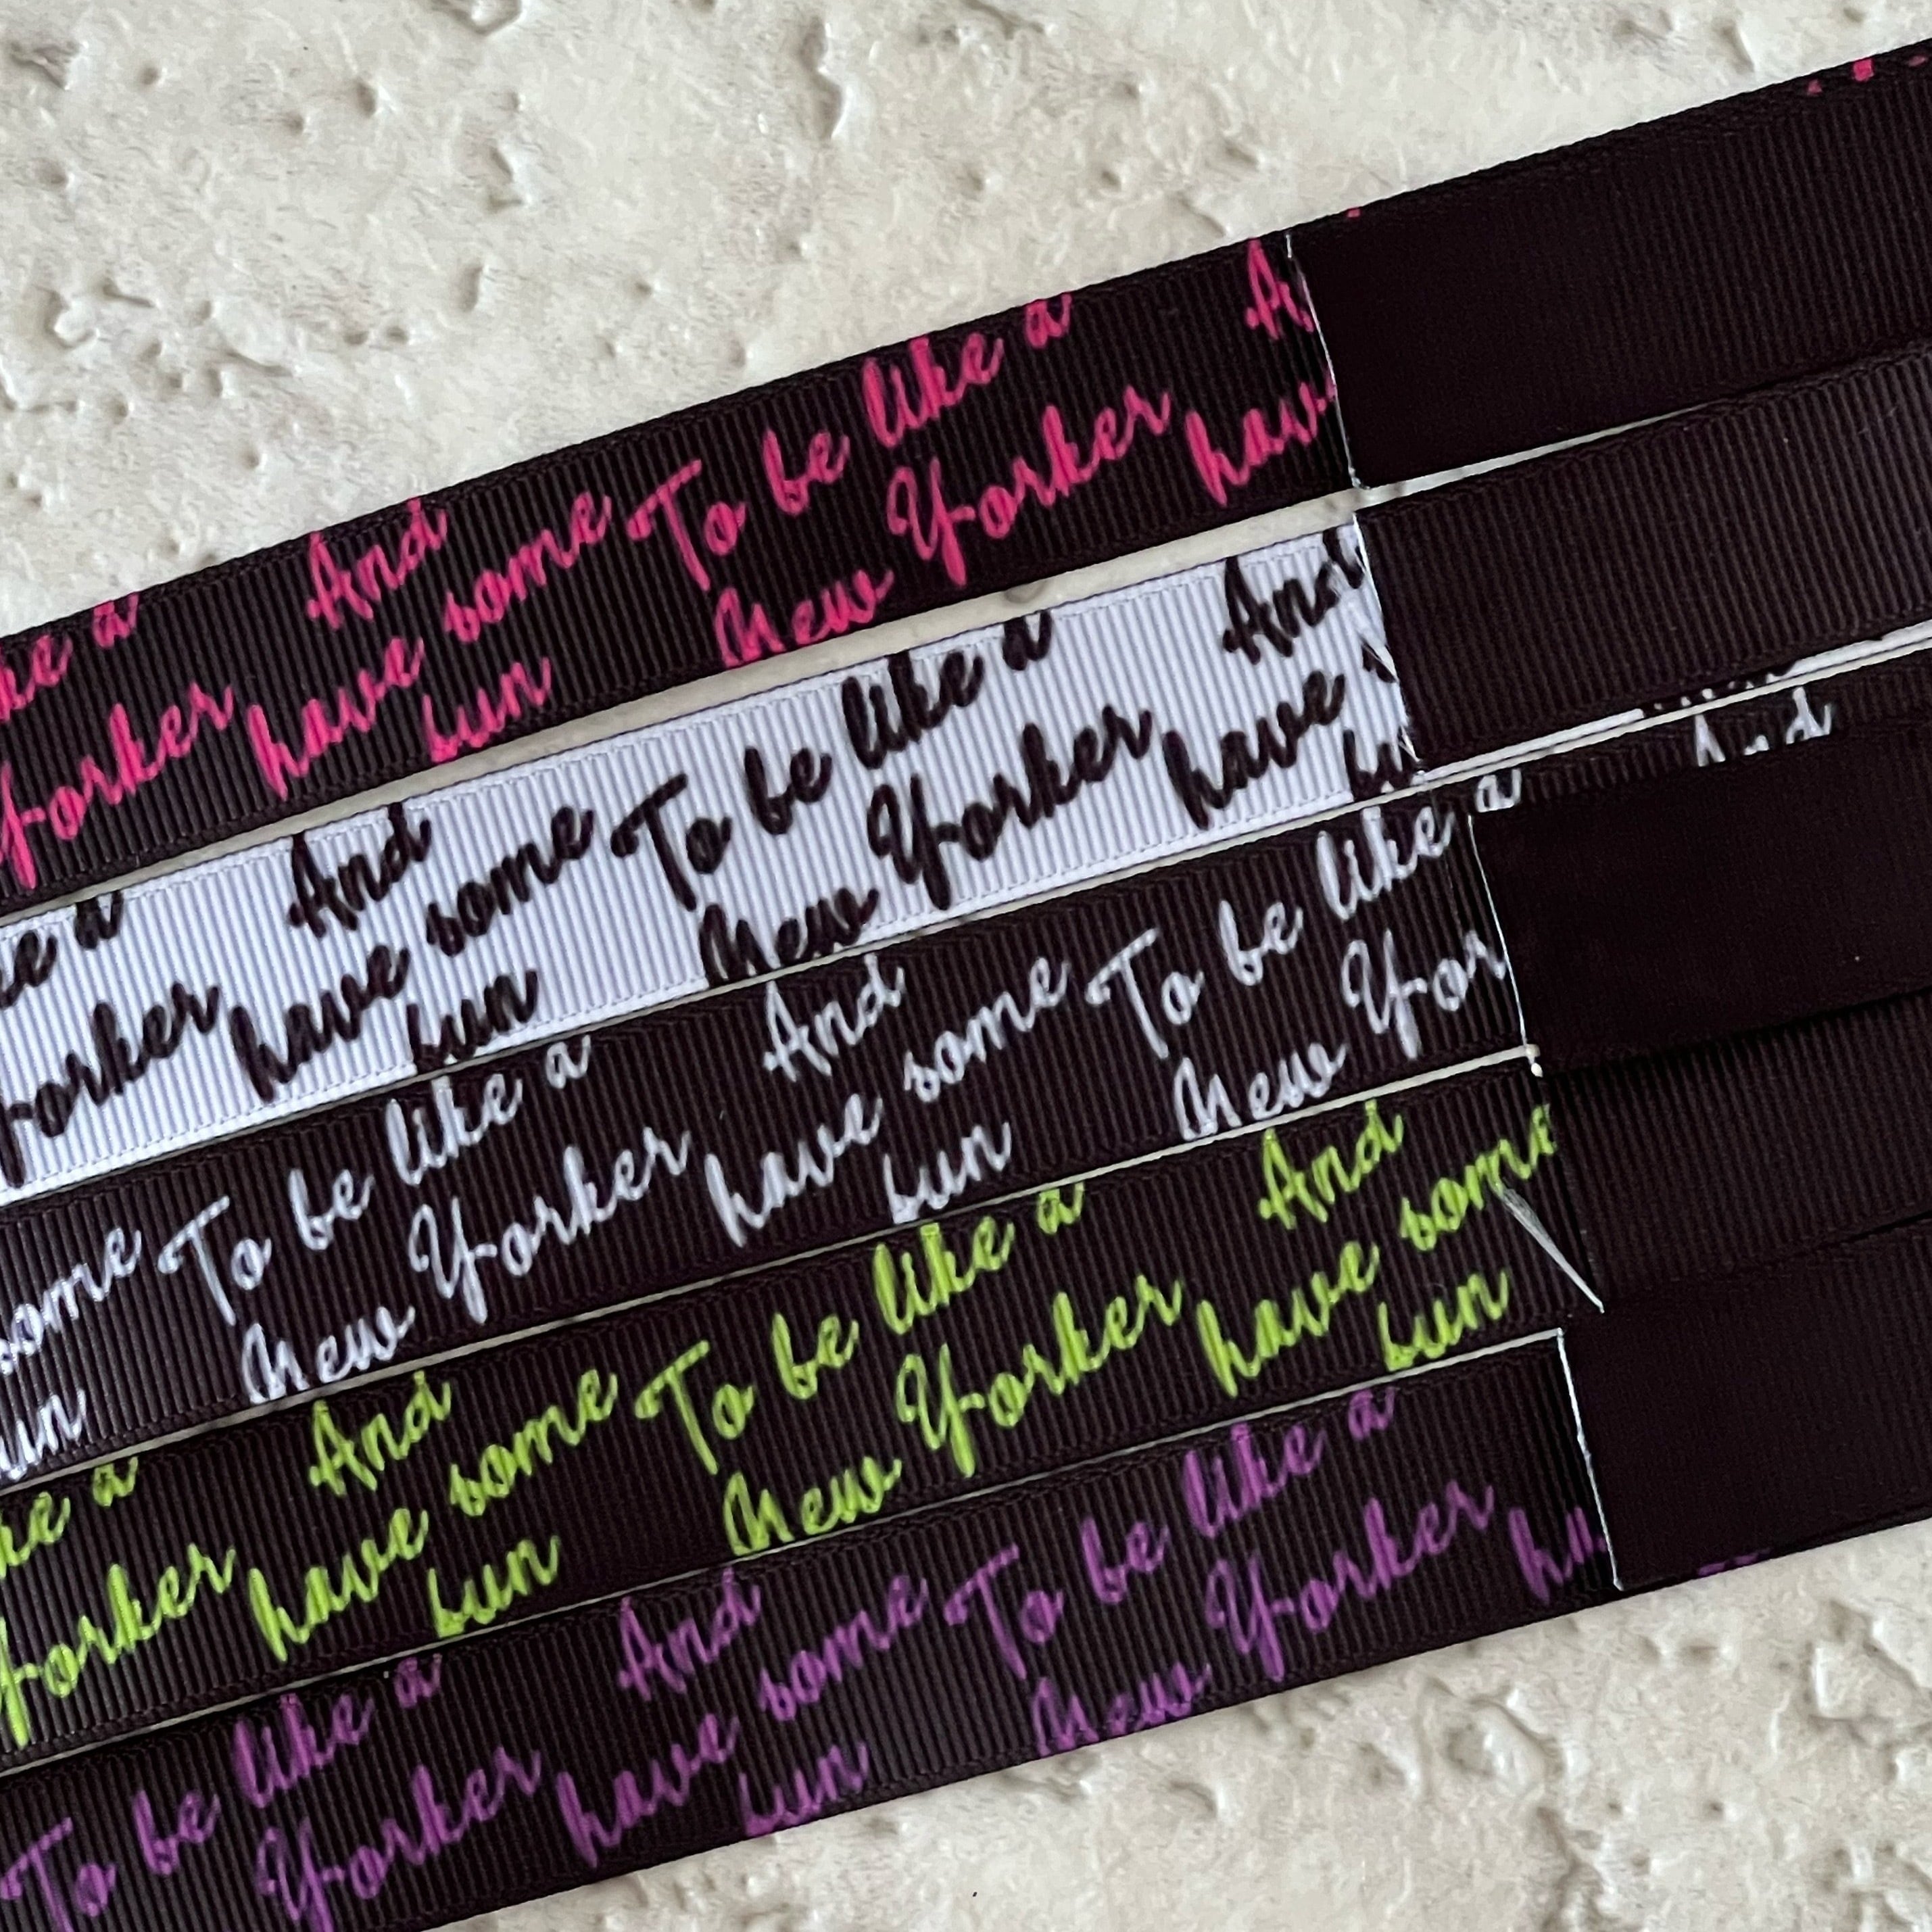 ke a
Yorker
And
have some
fun
To be like a
New Yorker
A
have
ke a
Yorker
And
have some
fun
To be like a
New Yorker
And
have
some
un
To be like a
New Yorker
And
have some
fun
To be like a
New Yor
And
ke a
Yorker
And
have some
fun
To be like a
New Yorker
And
have some
fun
To be like a
Yorker
And
have some
fun
To be like a
New Yorker
ha